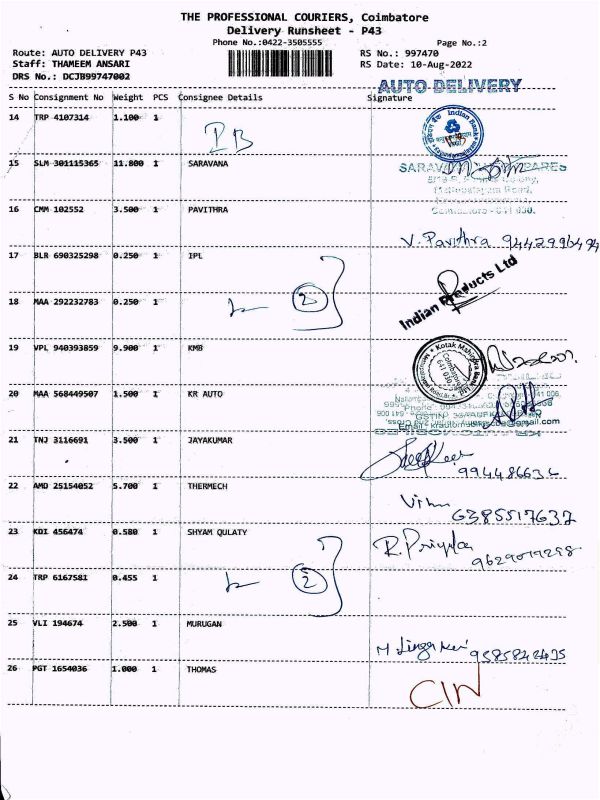 THE PROFESSIONAL COURIERS, Coimbatore
Delivery Runsheet - P43
Phone No.:0422-3505555
Page No.:2
Route: AUTO DELIVERY P43
RS No.: 997470
Staff: THAMEEM ANSARI
RS Date: 10-Aug-2022
DRS No.: DCJB99747002
AUTO DELIVERY
S No Consignment No Weight PCS Consignee Details Signature
14 TRP 4107314 1.100 1
IB
Indian Bank
15 SLM 301115365 11.800 1 SARAVANA
SARAVANA
16 CMM 102552 3.500 1 PAVITHRA
V. Pavithra
17 BLR 690325298 0.250 1 IPL
Indian Products Ltd
18 MAA 292232783 0.250 1
2
19 VPL 940393859 9.900 1 KMB
Kotak Mahindra Bank Ltd
20 MAA 568449507 1.500 1 KR AUTO
21 TNJ 3116691 3.500 1 JAYAKUMAR
994486636
22 AMD 25154052 5.700 1 THERMECH
6385517632
23 KDI 456474 0.580 1 SHYAM QULATY
R. Priya
24 TRP 6167581 0.455 1
2
25 VLI 194674 2.500 1 MURUGAN
9585842435
26 PGT 1654036 1.000 1 THOMAS